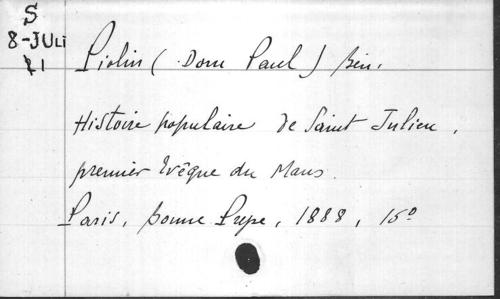 S
8-JULI
1
Piolin (Dom Paul) Bén.
Histoire populaire de Saint Julien,
premier Evêque du Mans.
Paris, Bonne Presse, 1888, 16º